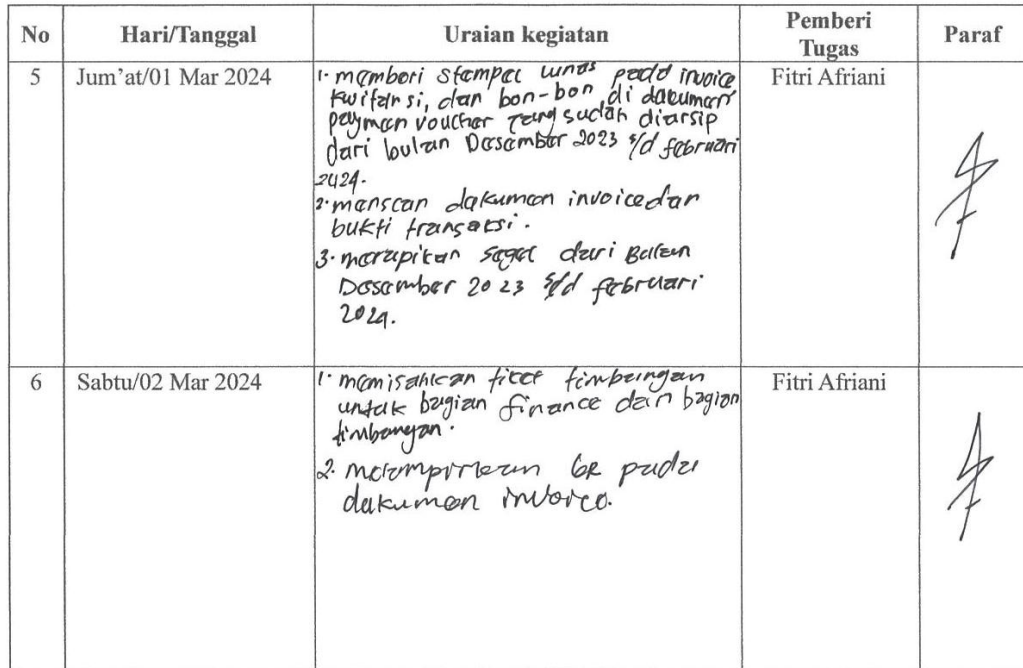 No Hari/Tanggal Uraian kegiatan Pemberi Tugas Paraf
5 Jum'at/01 Mar 2024 Fitri Afriani
1. memberi stempel lunas pada invoice
kwitansi, dan bon-bon di dokumen
paymen voucher yang sudah diarsip
dari bulan Desember 2023 s/d februari
2024.
2. menscan dokumen invoice dan
bukti transaksi.
3. merapikan segel dari Bulan
Desember 2023 s/d februari
2024.
6 Sabtu/02 Mar 2024 Fitri Afriani
1. memisahkan tiket timbangan
untuk bagian finance dan bagian
timbangan.
2. melampirkan GR pada
dokumen invoice.